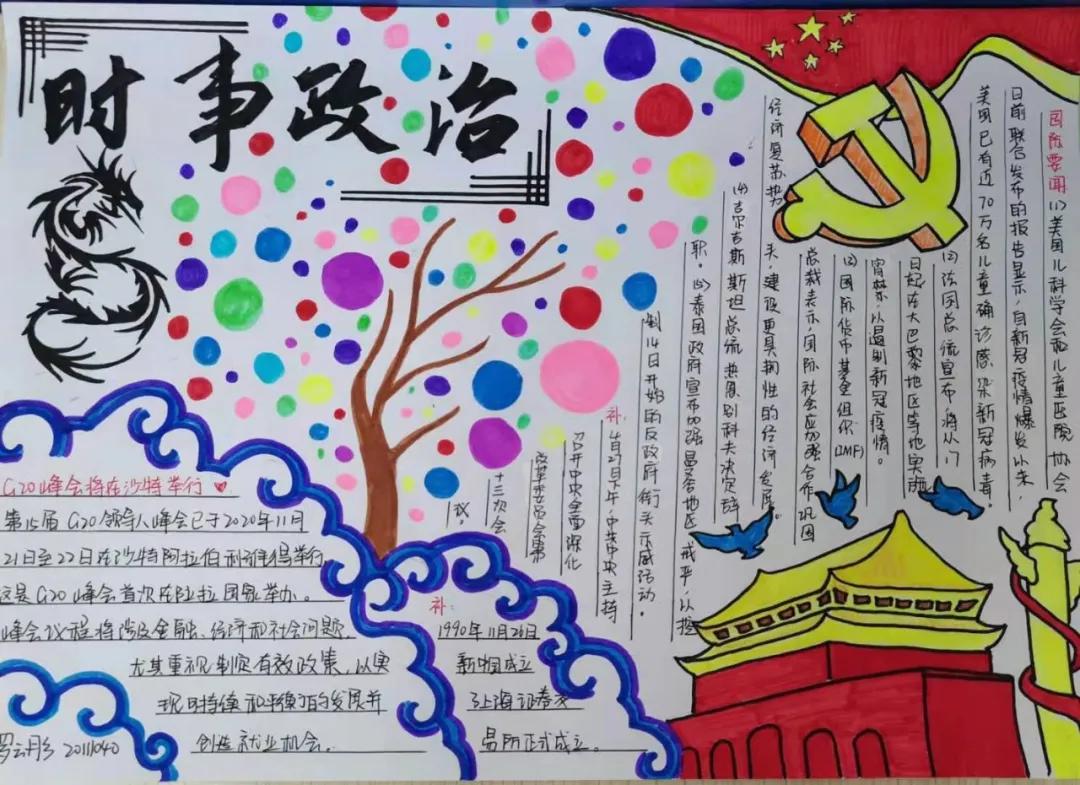 时事政治
国际要闻(1)美国儿科学会和儿童医院协会
日前联合发布的报告显示,自新冠疫情爆发以来,
美国已有近70万名儿童确诊感染新冠病毒。
(2)法国总统宣布将从17
日起在大巴黎地区等地实施
宵禁,以遏制新冠疫情。
(3)国际货币基金组织(IMF)
总裁表示,国际社会应加强合作,巩固
经济复苏势头,建设更具韧性的经济发展。
(4)吉尔吉斯斯坦总统热恩别科夫决定辞
职。(5)泰国政府宣布加强曼谷地区戒严,以控
制14日开始的反政府街头示威活动。
补:4月27日下午,中共中央主持
召开中央全面深化
改革委员会第
十三次会
议。
G20峰会将在沙特举行
第15届G20领导人峰会已于2020年11月
21日至22日在沙特阿拉伯利雅得举行,
这是G20峰会首次在阿拉伯国家举办。
峰会议程将涉及金融、经济和社会问题,
尤其重视制定有效政策,以实
现可持续和平衡的发展并
创造就业机会。
补:
1990年11月26日
新中国成立
上海证券交
易所正式成立。
2011040